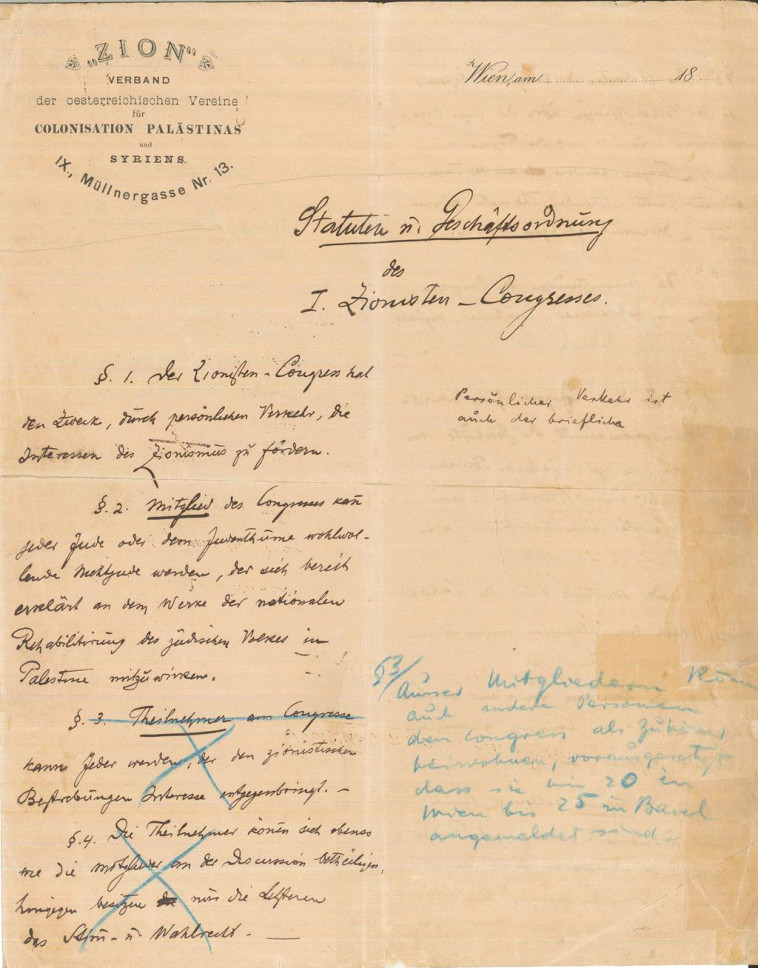 „ZION“
VERBAND
der oesterreichischen Vereine
für
COLONISATION PALÄSTINAS
und
SYRIENS.
IX., Müllnergasse Nr. 13.
Wien, am 18
Statuten u. Geschäftsordnung
des
I. Zionisten-Congresses.
§. 1. Der Zionisten-Congress hat
den Zweck, durch persönlichen Verkehr, die
Interessen des Zionismus zu fördern.
Persönlicher Verkehr ist
auch der briefliche
§. 2. Mitglied des Congresses kann
jeder Jude oder dem Judenthume wohlwol-
lende Nichtjude werden, der sich bereit
erklärt an dem Werke der nationalen
Rehabilitirung des jüdischen Volkes in
Palestina mitzuwirken.
§. 3. Theilnehmer am Congresse
kann jeder werden, der den zionistischen
Bestrebungen Interesse entgegenbringt. –
§. 4. Die Theilnehmer können sich ebenso
wie die Mitglieder an der Discussion betheiligen,
hingegen besitzen nur die Letzteren
das Stim- u. Wahlrecht. —
§3/
Ausser Mitgliedern
auch andere Personen
den Congress als Zuhörer
beiwohnen, vorausgesetzt
dass sie bis 20 in
Wien bis 25 in Basel
angemeldet sind